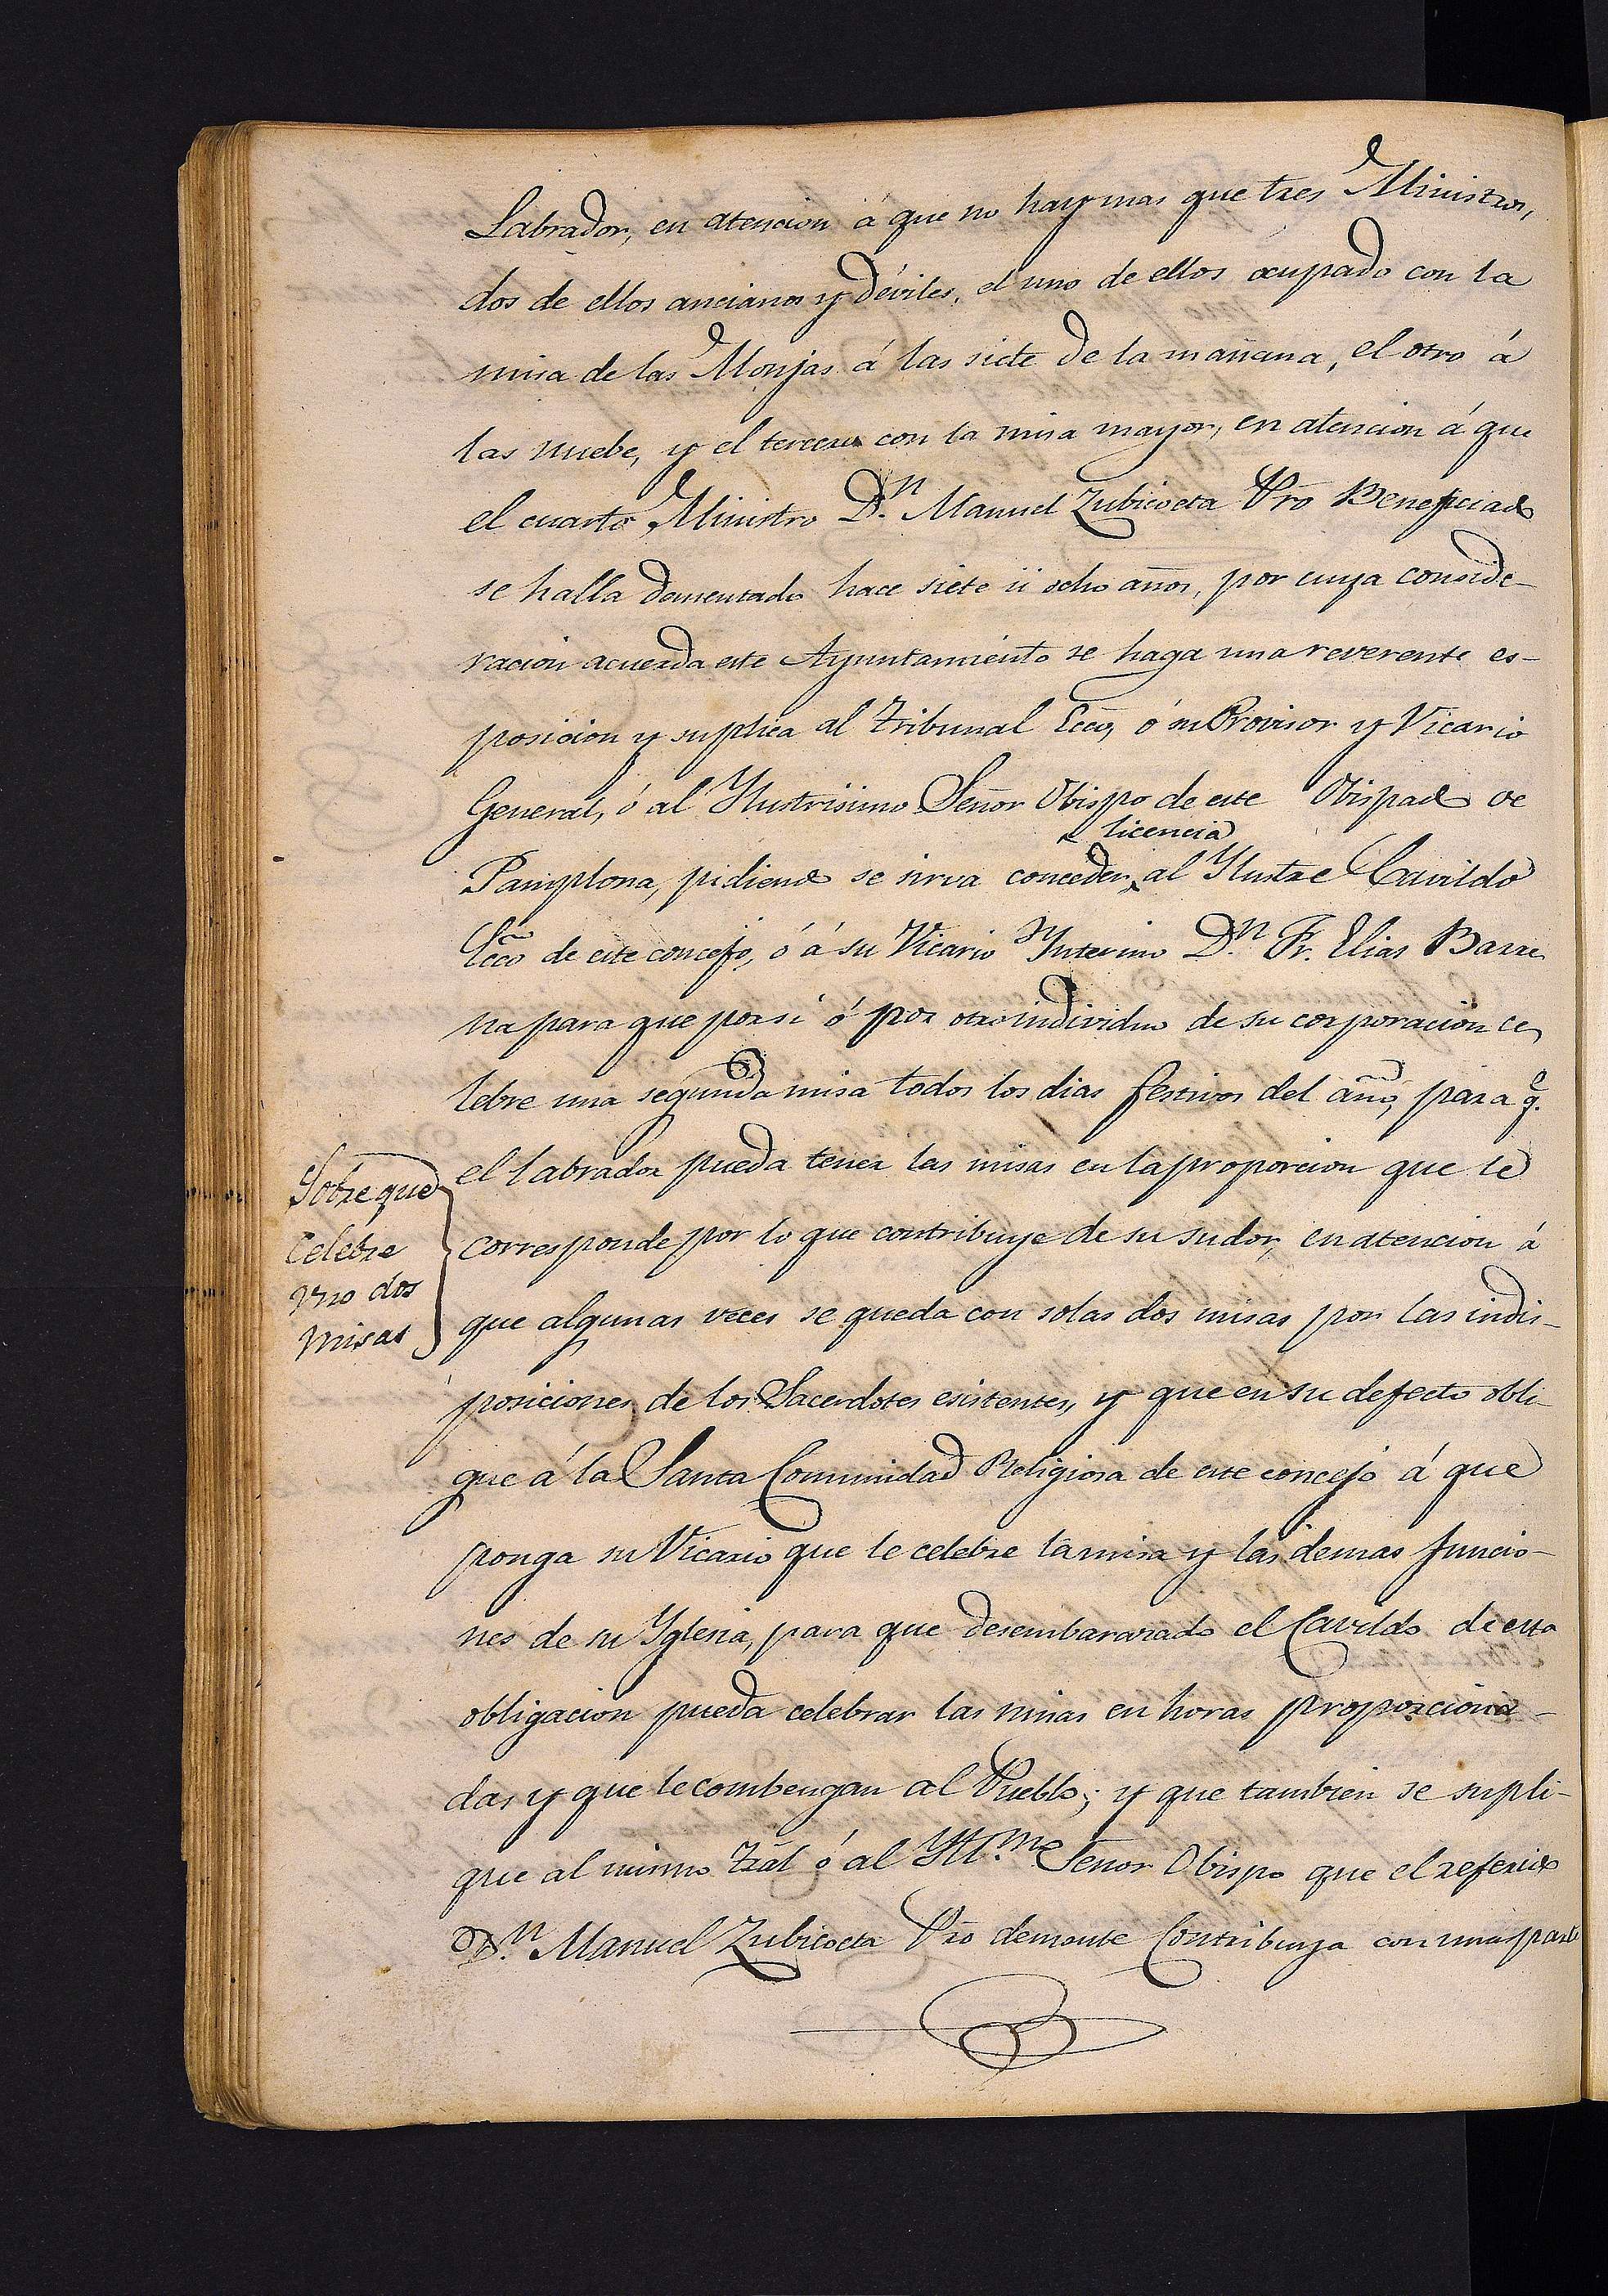 Labrador, en atencion á que no hay mas que tres Ministros,
dos de ellos ancianos y déviles, el uno de ellos ocupado con la
misa de las Monjas á las siete de la mañana, el otro á
las nuebe, y el tercero con la misa mayor, en atencion á que
el cuarto Ministro D.n Manuel Zubicoeta Pro Beneficiado
se halla dementado hace siete ú ocho años, por cuya conside-
racion acuerda este Ayuntamiento se haga una reverente es-
posicion y suplica al Tribunal Ecco, ó su Provisor y Vicario
General, ó al Ylustrisimo Señor Obispo de este Obispado de
licencia
Pamplona, pidiendo se sirva conceder al Ylustre Cavildo
Ecco de este concejo, ó á su Vicario Ynterino D.n Fr. Elias Barre
na para que por si ó por otro individuo de su corporacion ce
lebre una segunda misa todos los dias festivos del año, para q.e
el labrador pueda tener las misas en la proporcion que le
corresponde por lo que contribuye de su sudor, en atencion á
que algunas veces se queda con solas dos misas por las indis-
posiciones de los Sacerdotes esistentes, y que en su defecto obli-
gue á la Santa Comunidad Religiosa de este concejo á que
ponga su Vicario que le celebre la misa y las demas funcio-
nes de su Yglesia, para que desembarazado el Cavildo de esta
obligacion pueda celebrar las misas en horas proporciona-
das y que le combengan al Pueblo; y que tambien se supli-
que al mismo Tral ó al Yll.mo Señor Obispo que el referido
D.n Manuel Zubicoeta Pro demente Contribuya con una parte
Sobre que
Celebre
Uno dos
Misas